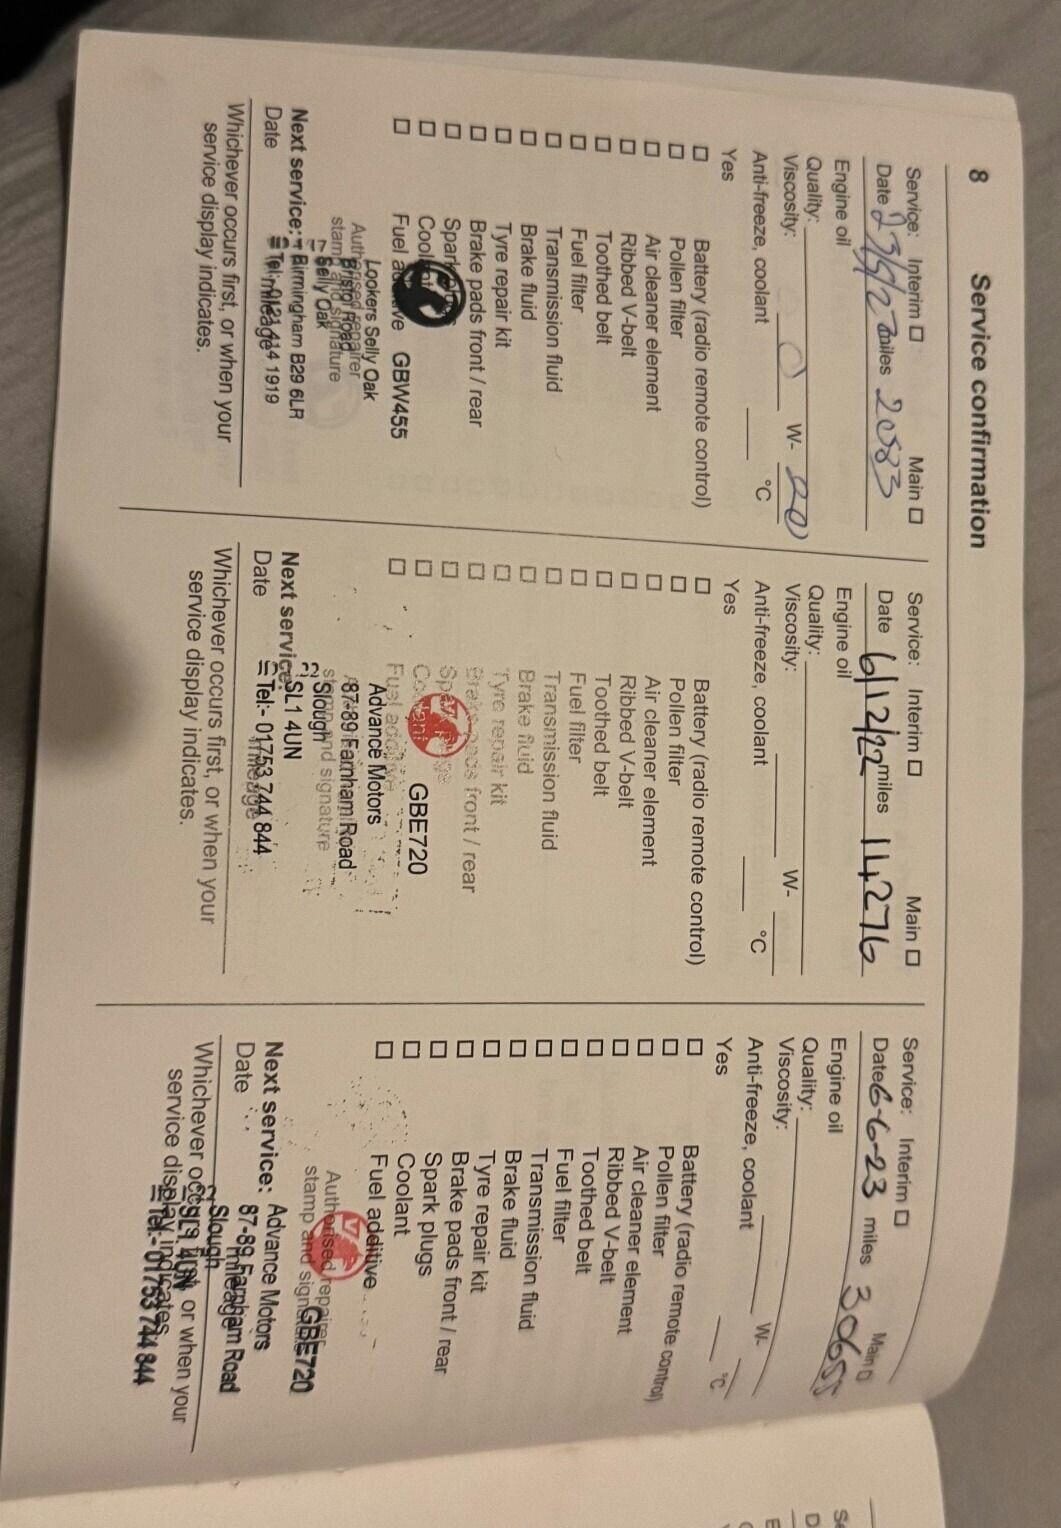 8 Service confirmation
Service: Interim □ Main □
Date miles
Engine oil
Quality:
Viscosity: 0 W- 20
Anti-freeze, coolant °C
Yes
□ Battery (radio remote control)
□ Pollen filter
□ Air cleaner element
□ Ribbed V-belt
□ Toothed belt
□ Fuel filter
□ Transmission fluid
□ Brake fluid
□ Tyre repair kit
□ Brake pads front / rear
□ Spark plugs
□ Coolant
□ Fuel additive GBW455
Lookers Selly Oak
Authorised repairer
Bristol Road
stamp and signature
Selly Oak
Next service: Birmingham B29 6LR
Date mileage
Tel:- 0121 414 1919
Whichever occurs first, or when your
service display indicates.
Service: Interim □ Main □
Date 6/12/22 miles 14276
Engine oil
Quality:
Viscosity: W-
Anti-freeze, coolant °C
Yes
□ Battery (radio remote control)
□ Pollen filter
□ Air cleaner element
□ Ribbed V-belt
□ Toothed belt
□ Fuel filter
□ Transmission fluid
□ Brake fluid
□ Tyre repair kit
□ Brake pads front / rear
□ Spark plugs
□ Coolant GBE720
□ Fuel additive
Advance Motors
87-89 Farnham Road
stamp and signature
Slough
Next service: SL1 4UN
Date mileage
Tel:- 01753 744 844
Whichever occurs first, or when your
service display indicates.
Service: Interim □ Main □
Date 6-6-23 miles 30655
Engine oil
Quality:
Viscosity: W-
Anti-freeze, coolant °C
Yes
□ Battery (radio remote control)
□ Pollen filter
□ Air cleaner element
□ Ribbed V-belt
□ Toothed belt
□ Fuel filter
□ Transmission fluid
□ Brake fluid
□ Tyre repair kit
□ Brake pads front / rear
□ Spark plugs
□ Coolant
□ Fuel additive
Authorised repairer
stamp and signature GBE720
Next service: Advance Motors
Date 87-89 Farnham Road
mileage
Slough
Whichever occurs first, or when your
SL1 4UN
service display indicates.
Tel:- 01753 744 844